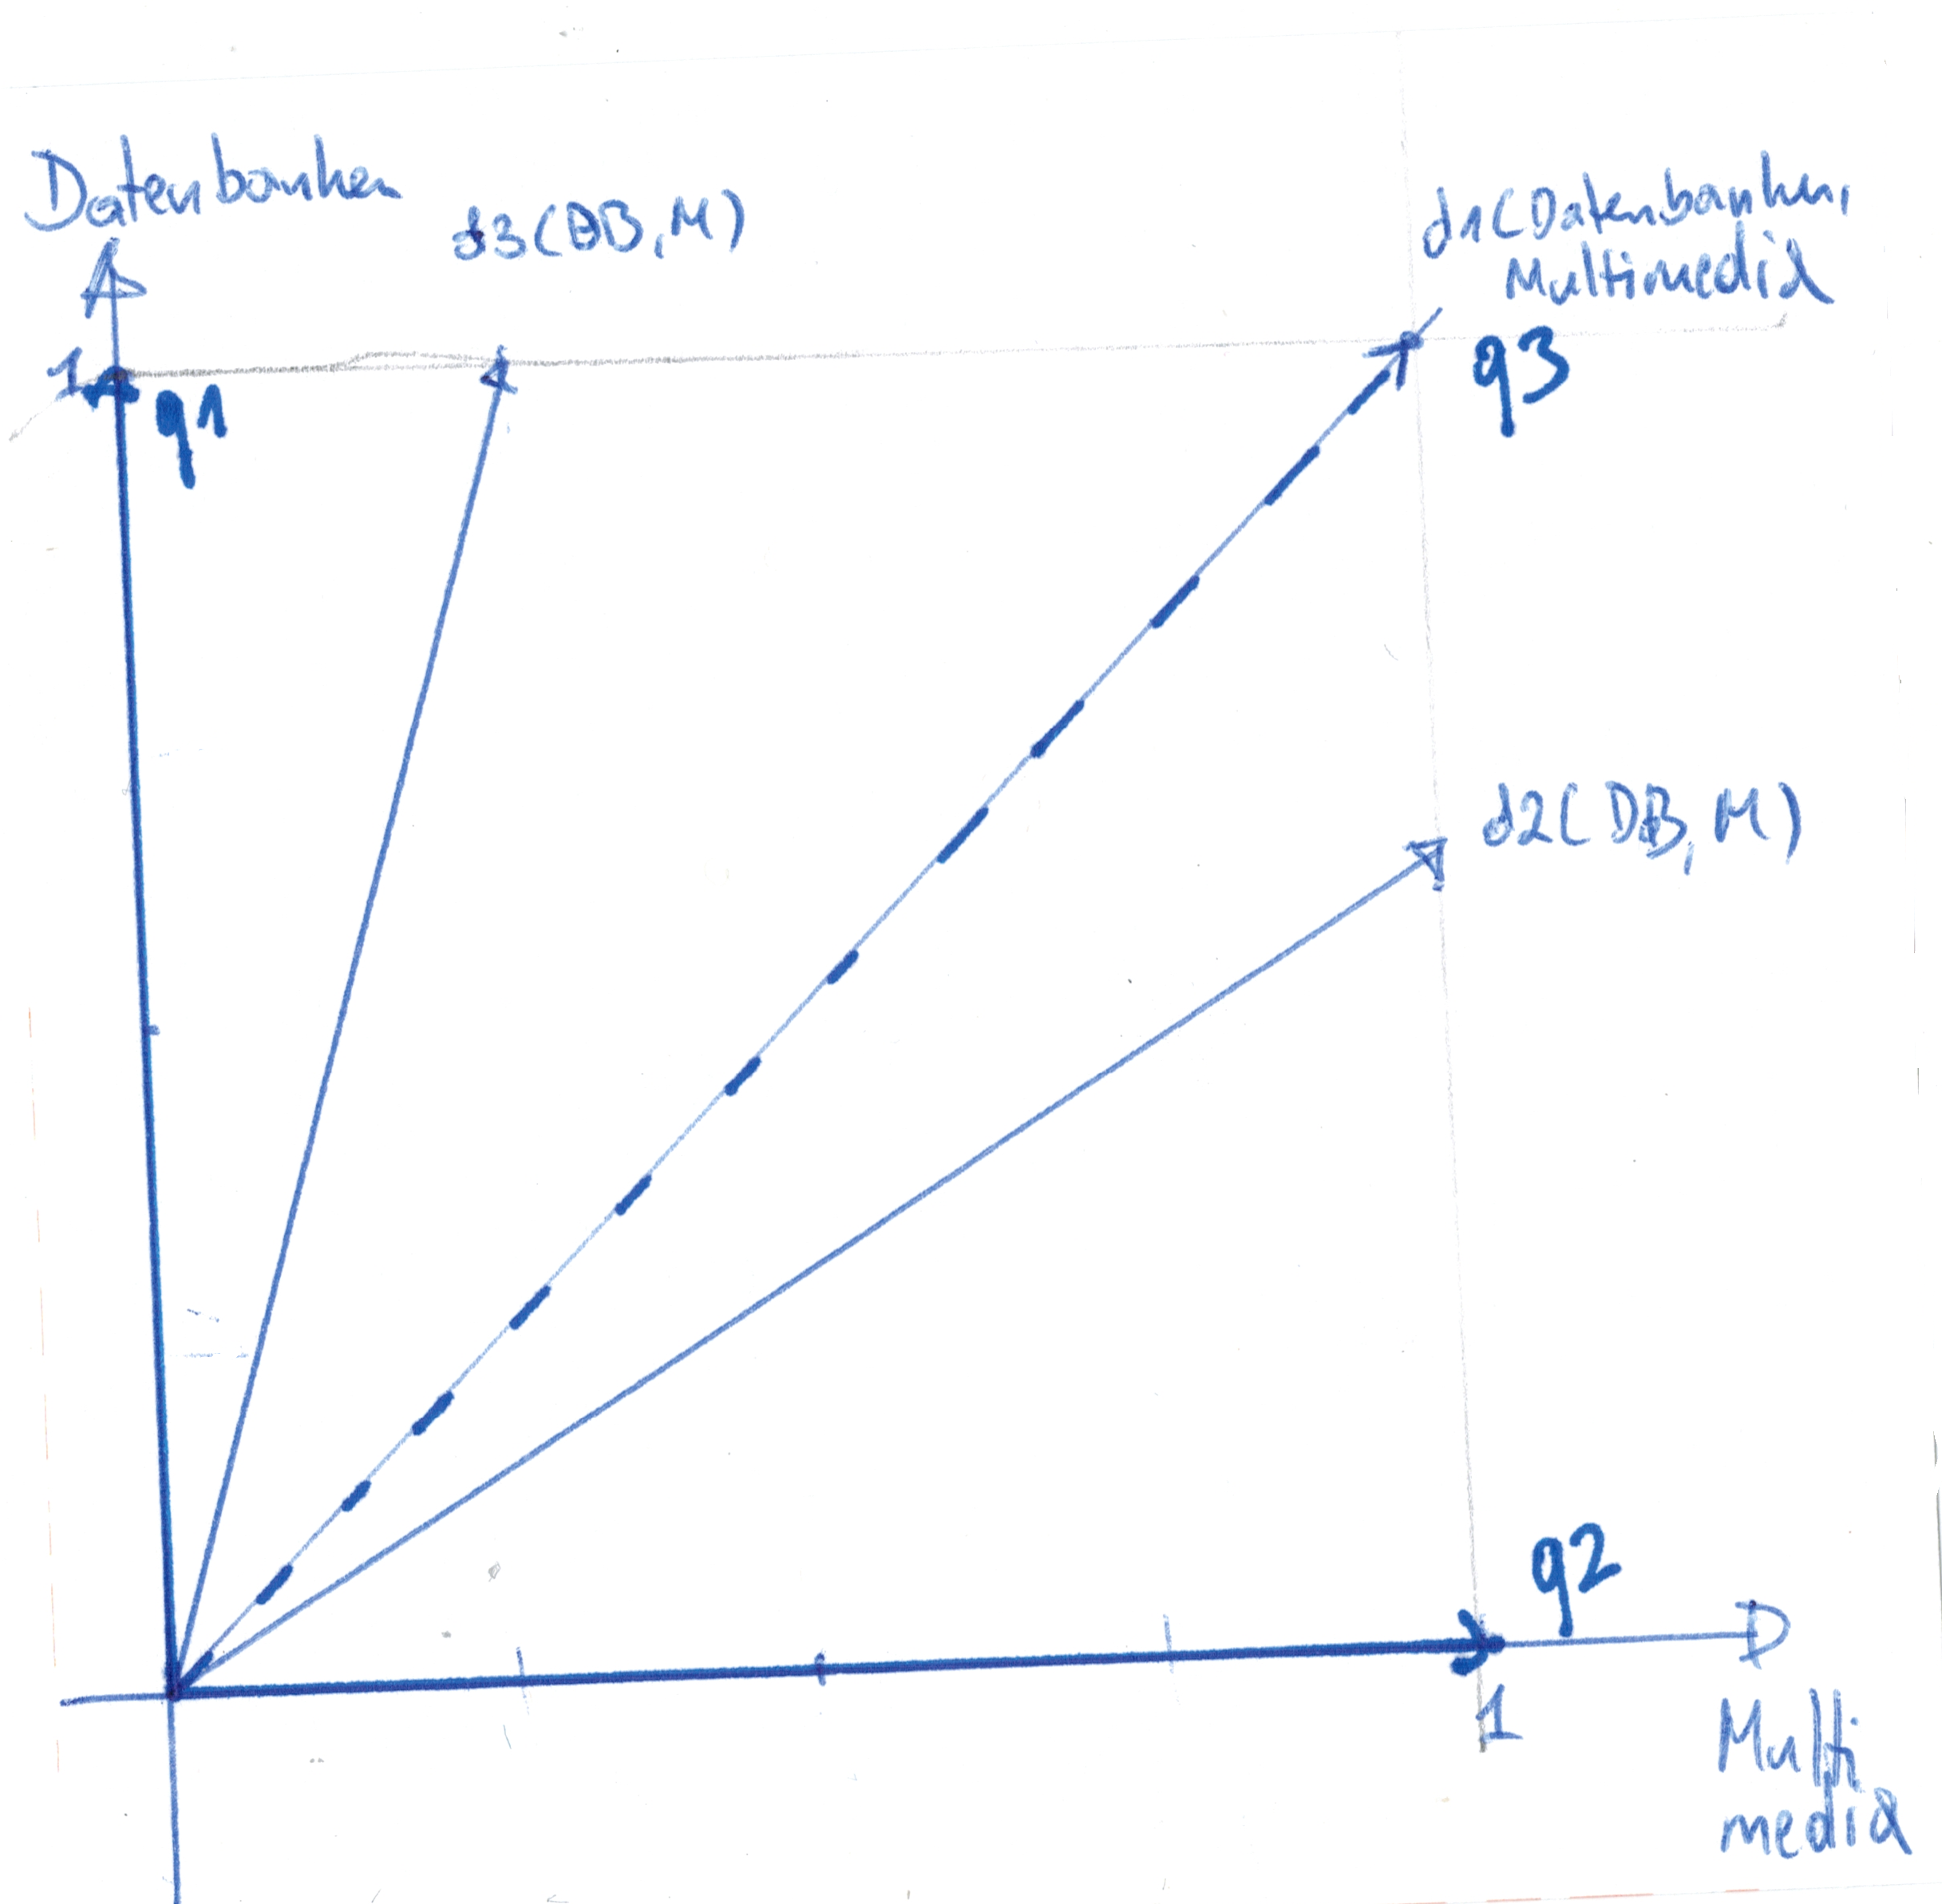 Datenbanken
d3(DB,M)
d1(Datenbanken,
Multimedia
1
q1
q3
d2(DB,M)
q2
1
Multi
media